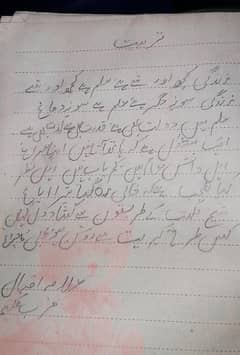 تربیت
زندگی کچھ اور شے ہے علم ہے کچھ اور شے
زندگی سوز جگر ہے علم ہے سوز دماغ
علم میں دولت بھی ہے قدرت بھی ہے لذت بھی ہے
ایک مشکل ہے کہ ہاتھ آتا نہیں اپنا سراغ
اہل دانش عام ہیں کم یاب ہیں اہل نظر
کیا تعجب ہے کہ خالی رہ گیا تیرا ایاغ
شیخ مکتب کے طریقوں سے کشاد دل کہاں
کس طرح کبریت سے روشن ہو بجلی کا چراغ
علامہ اقبال
ضرب